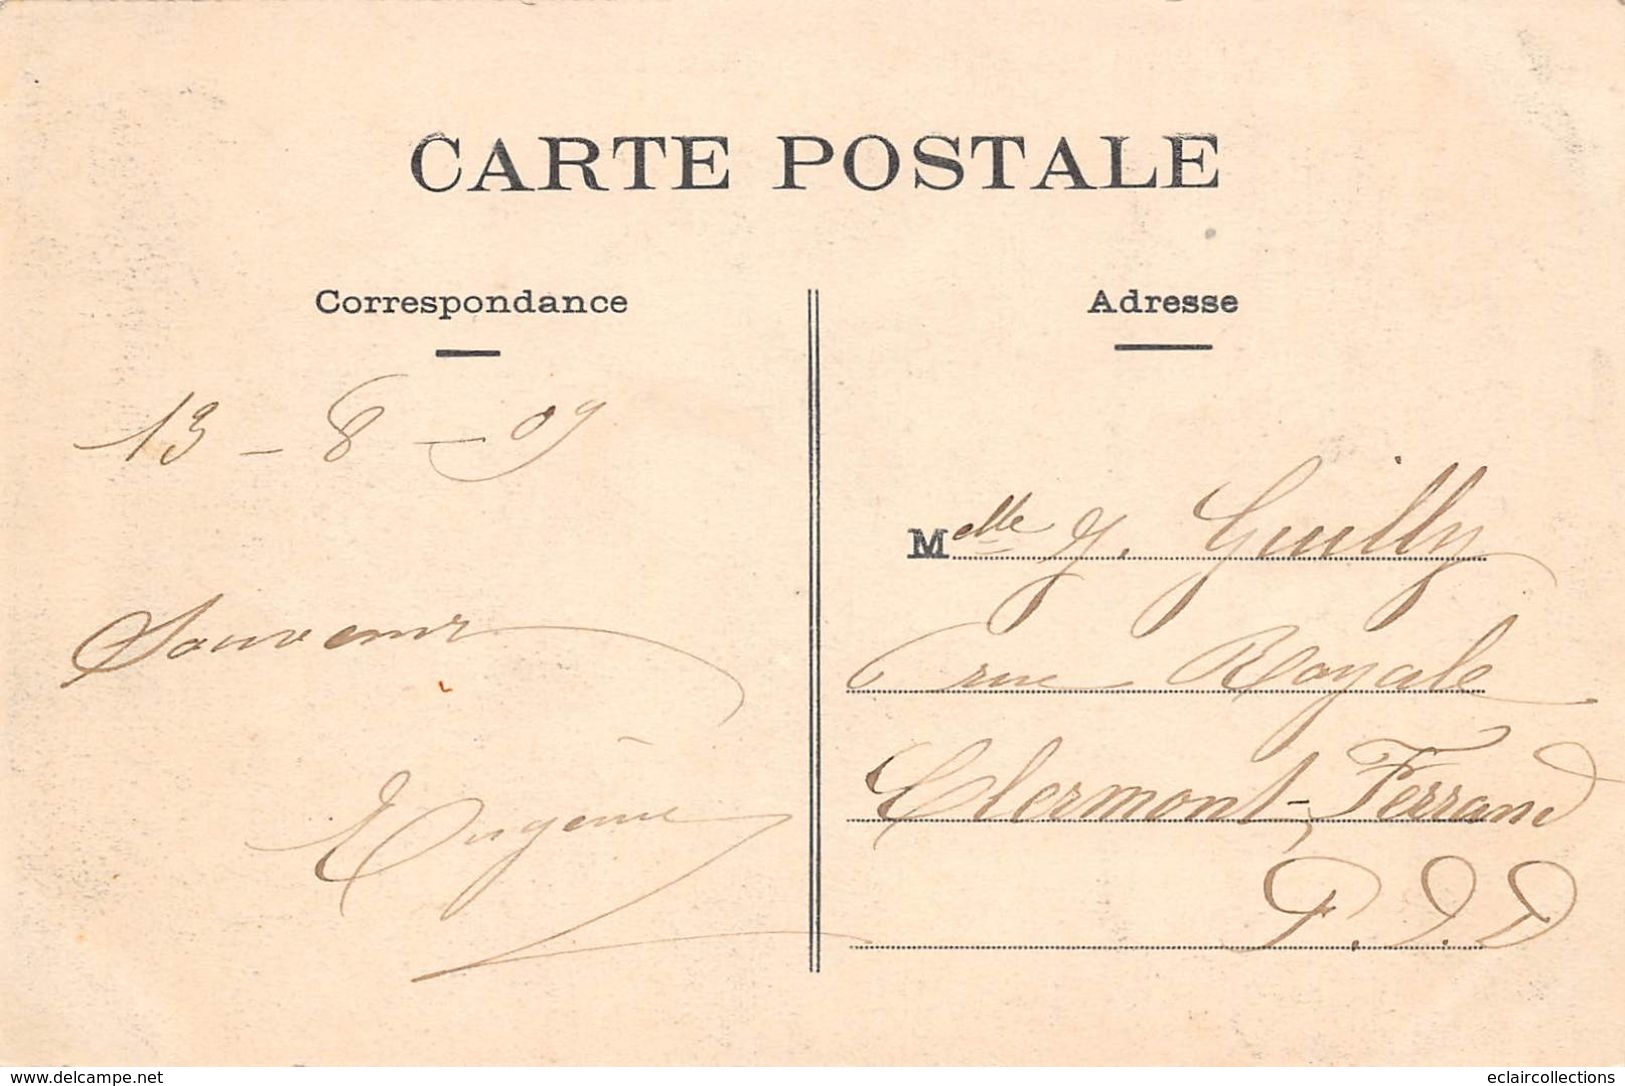 CARTE POSTALE
Correspondance
Adresse
13 - 8 - 09
Souvenir
Eugénie
Melle J. Guilly
rue Royale
Clermont-Ferrand
P. D. D
www.delcampe.net
eclaircollections